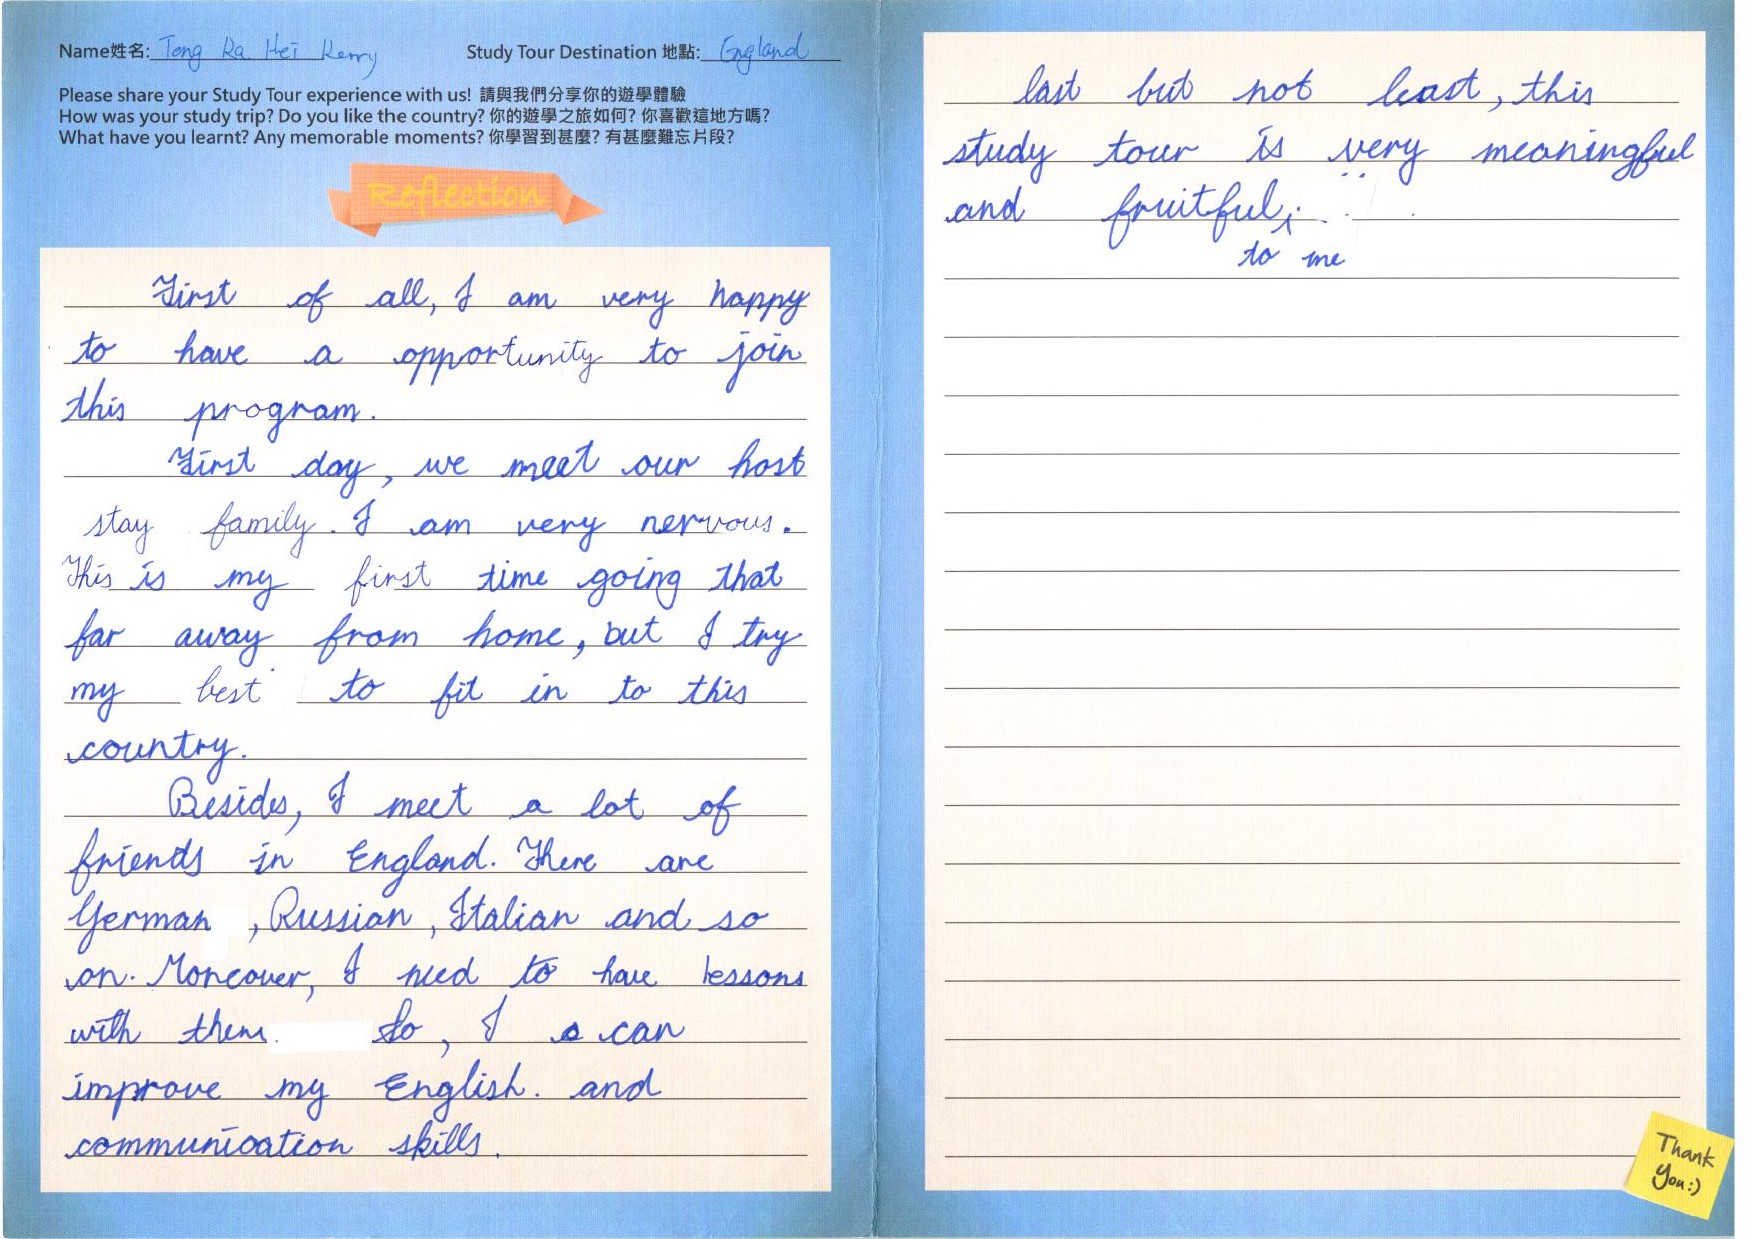 Name姓名: Tong Ka Hei Kerry
Study Tour Destination 地點: England
Please share your Study Tour experience with us! 請與我們分享你的遊學體驗
How was your study trip? Do you like the country? 你的遊學之旅如何? 你喜歡這地方嗎?
What have you learnt? Any memorable moments? 你學習到甚麼? 有甚麼難忘片段?
Reflection
First of all, I am very happy
to have a opportunity to join
this program.
First day, we meet our host
stay family. I am very nervous.
This is my first time going that
far away from home, but I try
my best to fit in to this
country.
Besides, I meet a lot of
friends in England. There are
German, Russian, Italian and so
on. Moreover, I need to have lessons
with them. So, I can
improve my English. and
communication skills.
last but not least, this
study tour is very meaningful
and fruitful.
to me
Thank
You:)